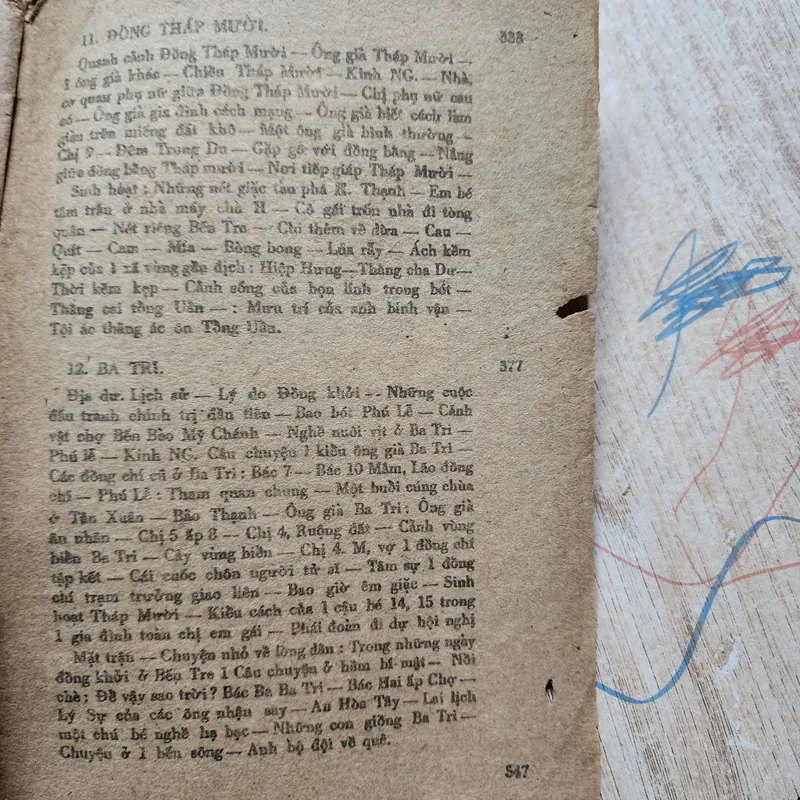 11. ĐỒNG THÁP MƯỜI. 333
Quanh cảnh Đồng Tháp Mười — Ông già Tháp Mười —
1 ông già khác — Chiến Tháp Mười — Kinh NG. — Nhà,
cơ quan phụ nữ giữa Đồng Tháp Mười — Chị phụ nữ cau
có — Ông già gia đình cách mạng — Ông già biết cách làm
giàu trên miếng đất khô — Một ông già bình thường —
Chị 9 — Đêm Trung Du — Gặp gỡ với đồng bằng — Nắng
giữa đồng bằng Tháp mười — Nơi tiếp giáp Tháp Mười —
Sinh hoạt : Những nét giặc tàn phá X. Thạnh — Em bé
tâm trần ở nhà máy chú H — Cô gái trốn nhà đi tòng
quân — Nét riêng Bến Tre — Chi thêm về dừa — Cau —
Quít — Cam — Mía — Bòng bong — Lúa rẫy — Ách kềm
kẹp của 1 xã vùng gần địch : Hiệp Hưng — Thằng cha Dư —
Thời kềm kẹp — Cảnh sống của bọn lính trong bót —
Thằng cai tổng Uẩn — : Mưu trí của anh binh vận —
Tội ác thằng ác ôn Tổng Uẩn.
12. BA TRI. 377
Địa dư. Lịch sử — Lý do Đồng khởi — Những cuộc
đấu tranh chính trị đầu tiên — Bao bót Phú Lễ — Cảnh
vật chợ Bến Bào Mỹ Chánh — Nghề nuôi vịt ở Ba Tri —
Phú lễ — Kinh NG. Câu chuyện 1 kiều ông già Ba Tri —
Các đồng chí cũ ở Ba Tri : Bác 7 — Bác 10 Mâm, Lão đồng
chí — Phú Lễ : Tham quan chung — Một buổi cúng chùa
ở Tân Xuân — Bảo Thạnh — Ông già Ba Tri : Ông già
ân nhân — Chị 5 ấp 8 — Chị 4, Ruộng đất — Cảnh vùng
biển Ba Tri — Cây vùng biển — Chị 4. M, vợ 1 đồng chí
tập kết — Cái cuốc chôn người tử sĩ — Tâm sự 1 đồng
chí trạm trưởng giao liên — Bao giờ êm giặc — Sinh
hoạt Tháp Mười — Kiều cách của 1 cậu bé 14, 15 trong
1 gia đình toàn chị em gái — Phái đoàn đi dự hội nghị
Mặt trận — Chuyện nhỏ về lòng dân : Trong những ngày
đồng khởi ở Bến Tre 1 Câu chuyện ở hầm bí mật — Nồi
chè : Đề vậy sao trời ? Bác Ba Ba Tri — Bác Hai ấp Chợ —
Lý Sự của các ông nhậu say — An Hòa Tây — Lai lịch
một chú bé nghề hạ bạc — Những con giồng Ba Tri —
Chuyện ở 1 bến sông — Anh bộ đội về quê.
547